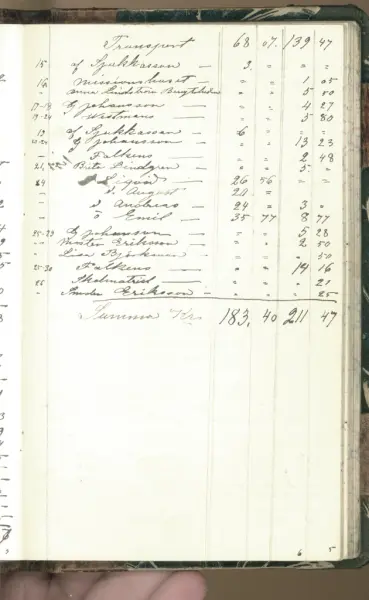 Transport 68 07. 139 47
15 af Sjukkassan — 3 " " "
16 missionshuset — " " 1 05
" Lindström " " 5 00
17-18 G Johansson — " " 4 27
19-24 Westmans — " " 5 80
19 af Sjukkassan — 6 " " "
G Johansson — " " 13 23
— Falkens — " " 2 48
21 Brita Lindgren — " " 5 "
24 26 56 " "
— d. August 20 " " "
— d. Andreas — 24 " 3 "
— d Emil — 35 77 8 77
25-29 G Johansson — " " 5 28
— Eriksson — " " 2 50
— Lisa Björkman — " " " 50
25-30 Falkens — " " 14 16
25 " " " 21
" Eriksson — " " " 25
Summa Kr. 183. 40 211 47
6 5